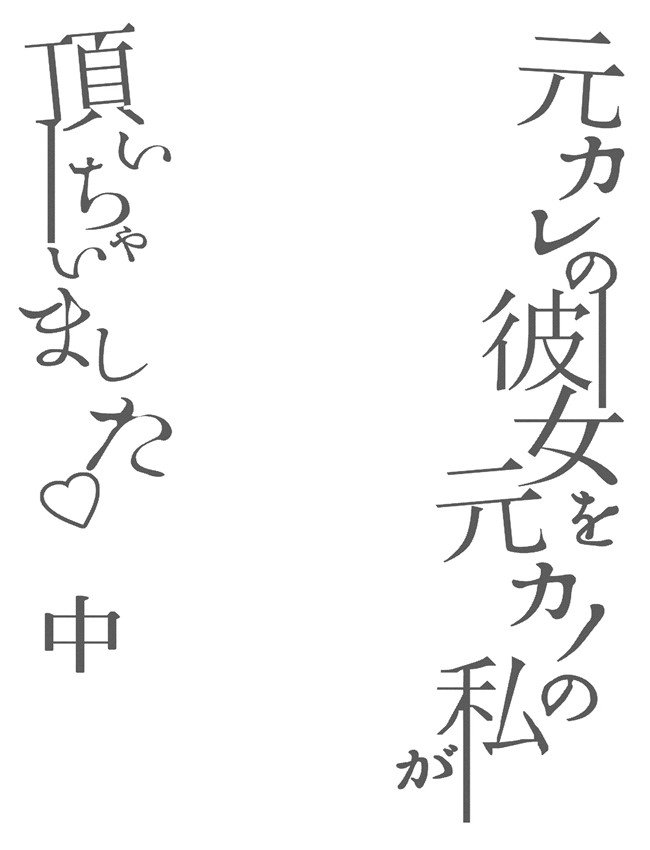 元カレの彼女を
元カノの私が
頂いちゃいました♡
中